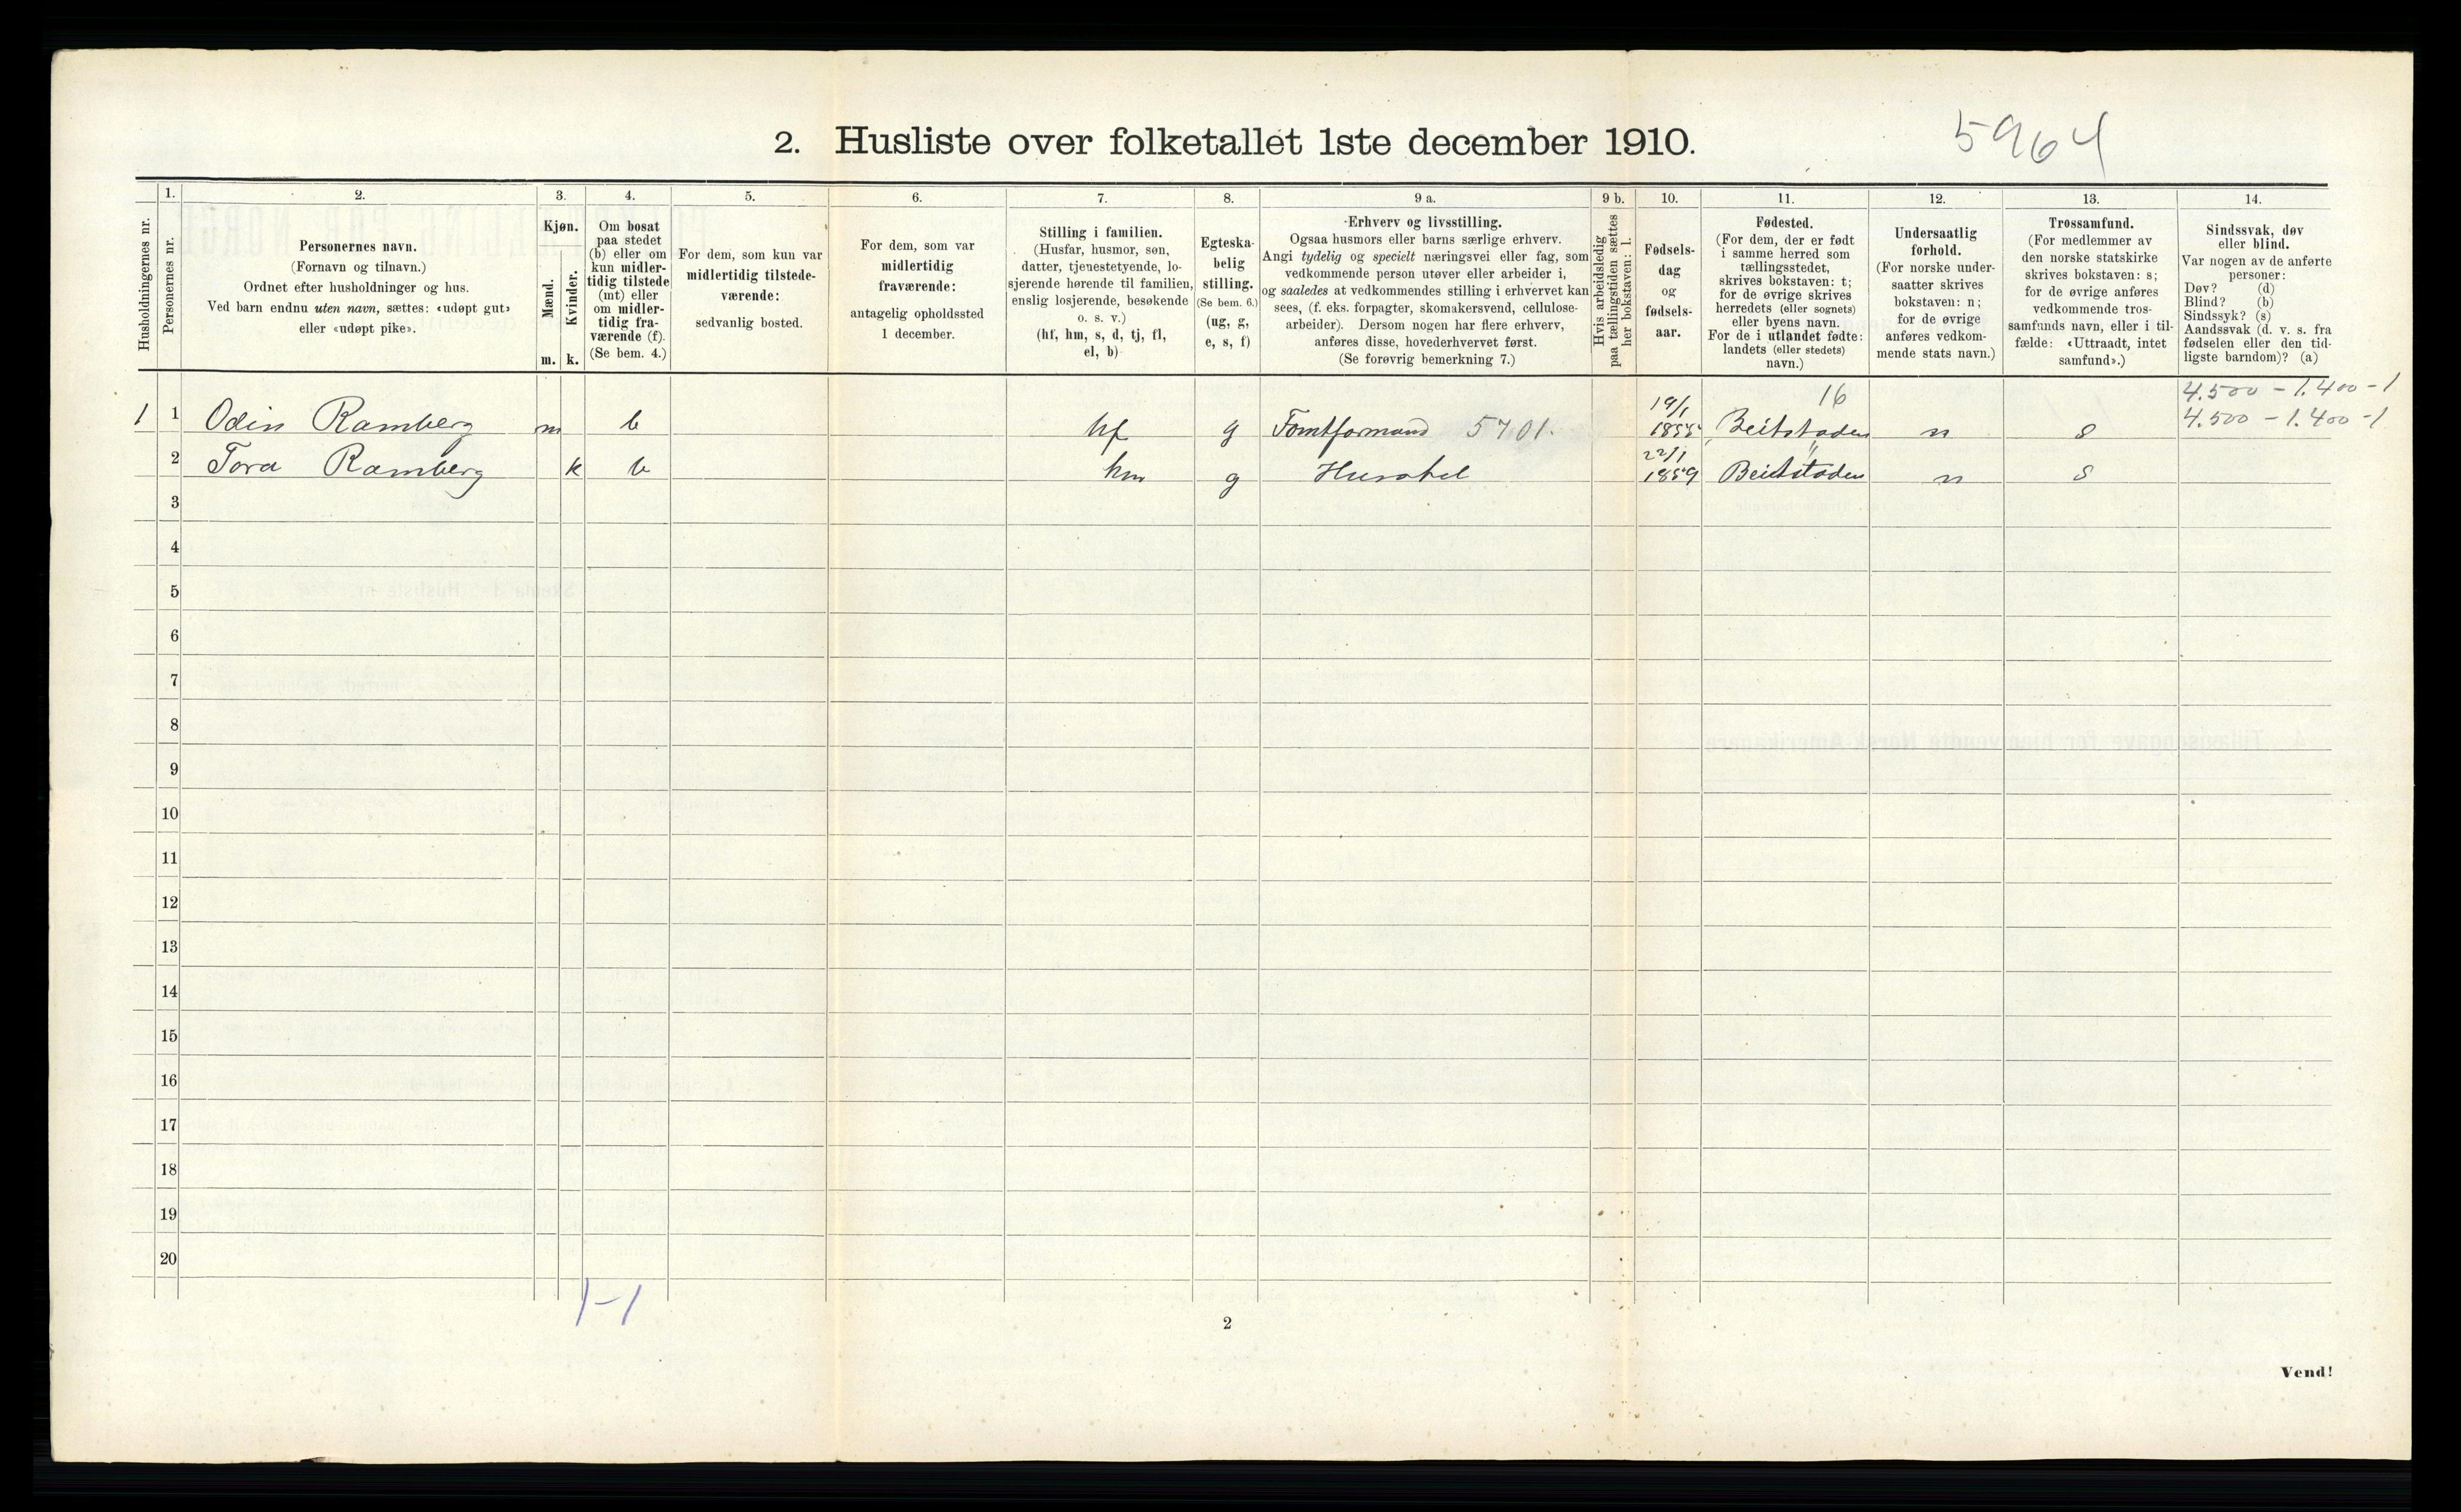 2. Husliste over folketallet 1ste december 1910.
5964
Husholdningernes nr.
1.
Personernes nr.
2.
Personernes navn.
(Fornavn og tilnavn.)
Ordnet efter husholdninger og hus.
Ved barn endnu uten navn, sættes: «udøpt gut»
eller «udøpt pike».
3.
Kjøn.
Mænd.
Kvinder.
m. k.
4.
Om bosat
paa stedet
(b) eller om
kun midler-
tidig tilstede
(mt) eller
om midler-
tidig fra-
værende (f).
(Se bem. 4.)
5.
For dem, som kun var
midlertidig tilstede-
værende:
sedvanlig bosted.
6.
For dem, som var
midlertidig
fraværende:
antagelig opholdssted
1 december.
7.
Stilling i familien.
(Husfar, husmor, søn,
datter, tjenestetyende, lo-
sjerende hørende til familien,
enslig losjerende, besøkende
o. s. v.)
(hf, hm, s, d, tj, fl,
el, b)
8.
Egteska-
belig
stilling.
(Se bem. 6.)
(ug, g,
e, s, f)
9 a.
Erhverv og livsstilling.
Ogsaa husmors eller barns særlige erhverv.
Angi tydelig og specielt næringsvei eller fag, som
vedkommende person utøver eller arbeider i,
og saaledes at vedkommendes stilling i erhvervet kan
sees, (f. eks. forpagter, skomakersvend, cellulose-
arbeider). Dersom nogen har flere erhverv,
anføres disse, hovederhvervet først.
(Se forøvrig bemerkning 7.)
9 b.
Hvis arbeidsledig
paa tællingstiden sættes
her bokstaven: l.
10.
Fødsels-
dag
og
fødsels-
aar.
11.
Fødested.
(For dem, der er født
i samme herred som
tællingsstedet,
skrives bokstaven: t;
for de øvrige skrives
herredets (eller sognets)
eller byens navn.
For de i utlandet fødte:
landets (eller stedets)
navn.)
12.
Undersaatlig
forhold.
(For norske under-
saatter skrives
bokstaven: n;
for de øvrige
anføres vedkom-
mende stats navn.)
13.
Trossamfund.
(For medlemmer av
den norske statskirke
skrives bokstaven: s;
for de øvrige anføres
vedkommende tros-
samfunds navn, eller i til-
fælde: «Uttraadt, intet
samfund».)
14.
Sindssvak, døv
eller blind.
Var nogen av de anførte
personer:
Døv? (d)
Blind? (b)
Sindssyk? (s)
Aandssvak (d. v. s. fra
fødselen eller den tid-
ligste barndom)? (a)
4.500 - 1.400 - 1
1 1 Odin Ramberg m b hf g Tomtformand 5701. 19/1 16 Beitstaden n s 4.500 - 1.400 - 1
2 Tora Ramberg k b hm g Husstel 22/1 1859 " Beitstaden n s
3
4
5
6
7
8
9
10
11
12
13
14
15
16
17
18
19
20
1-1
2
Vend!